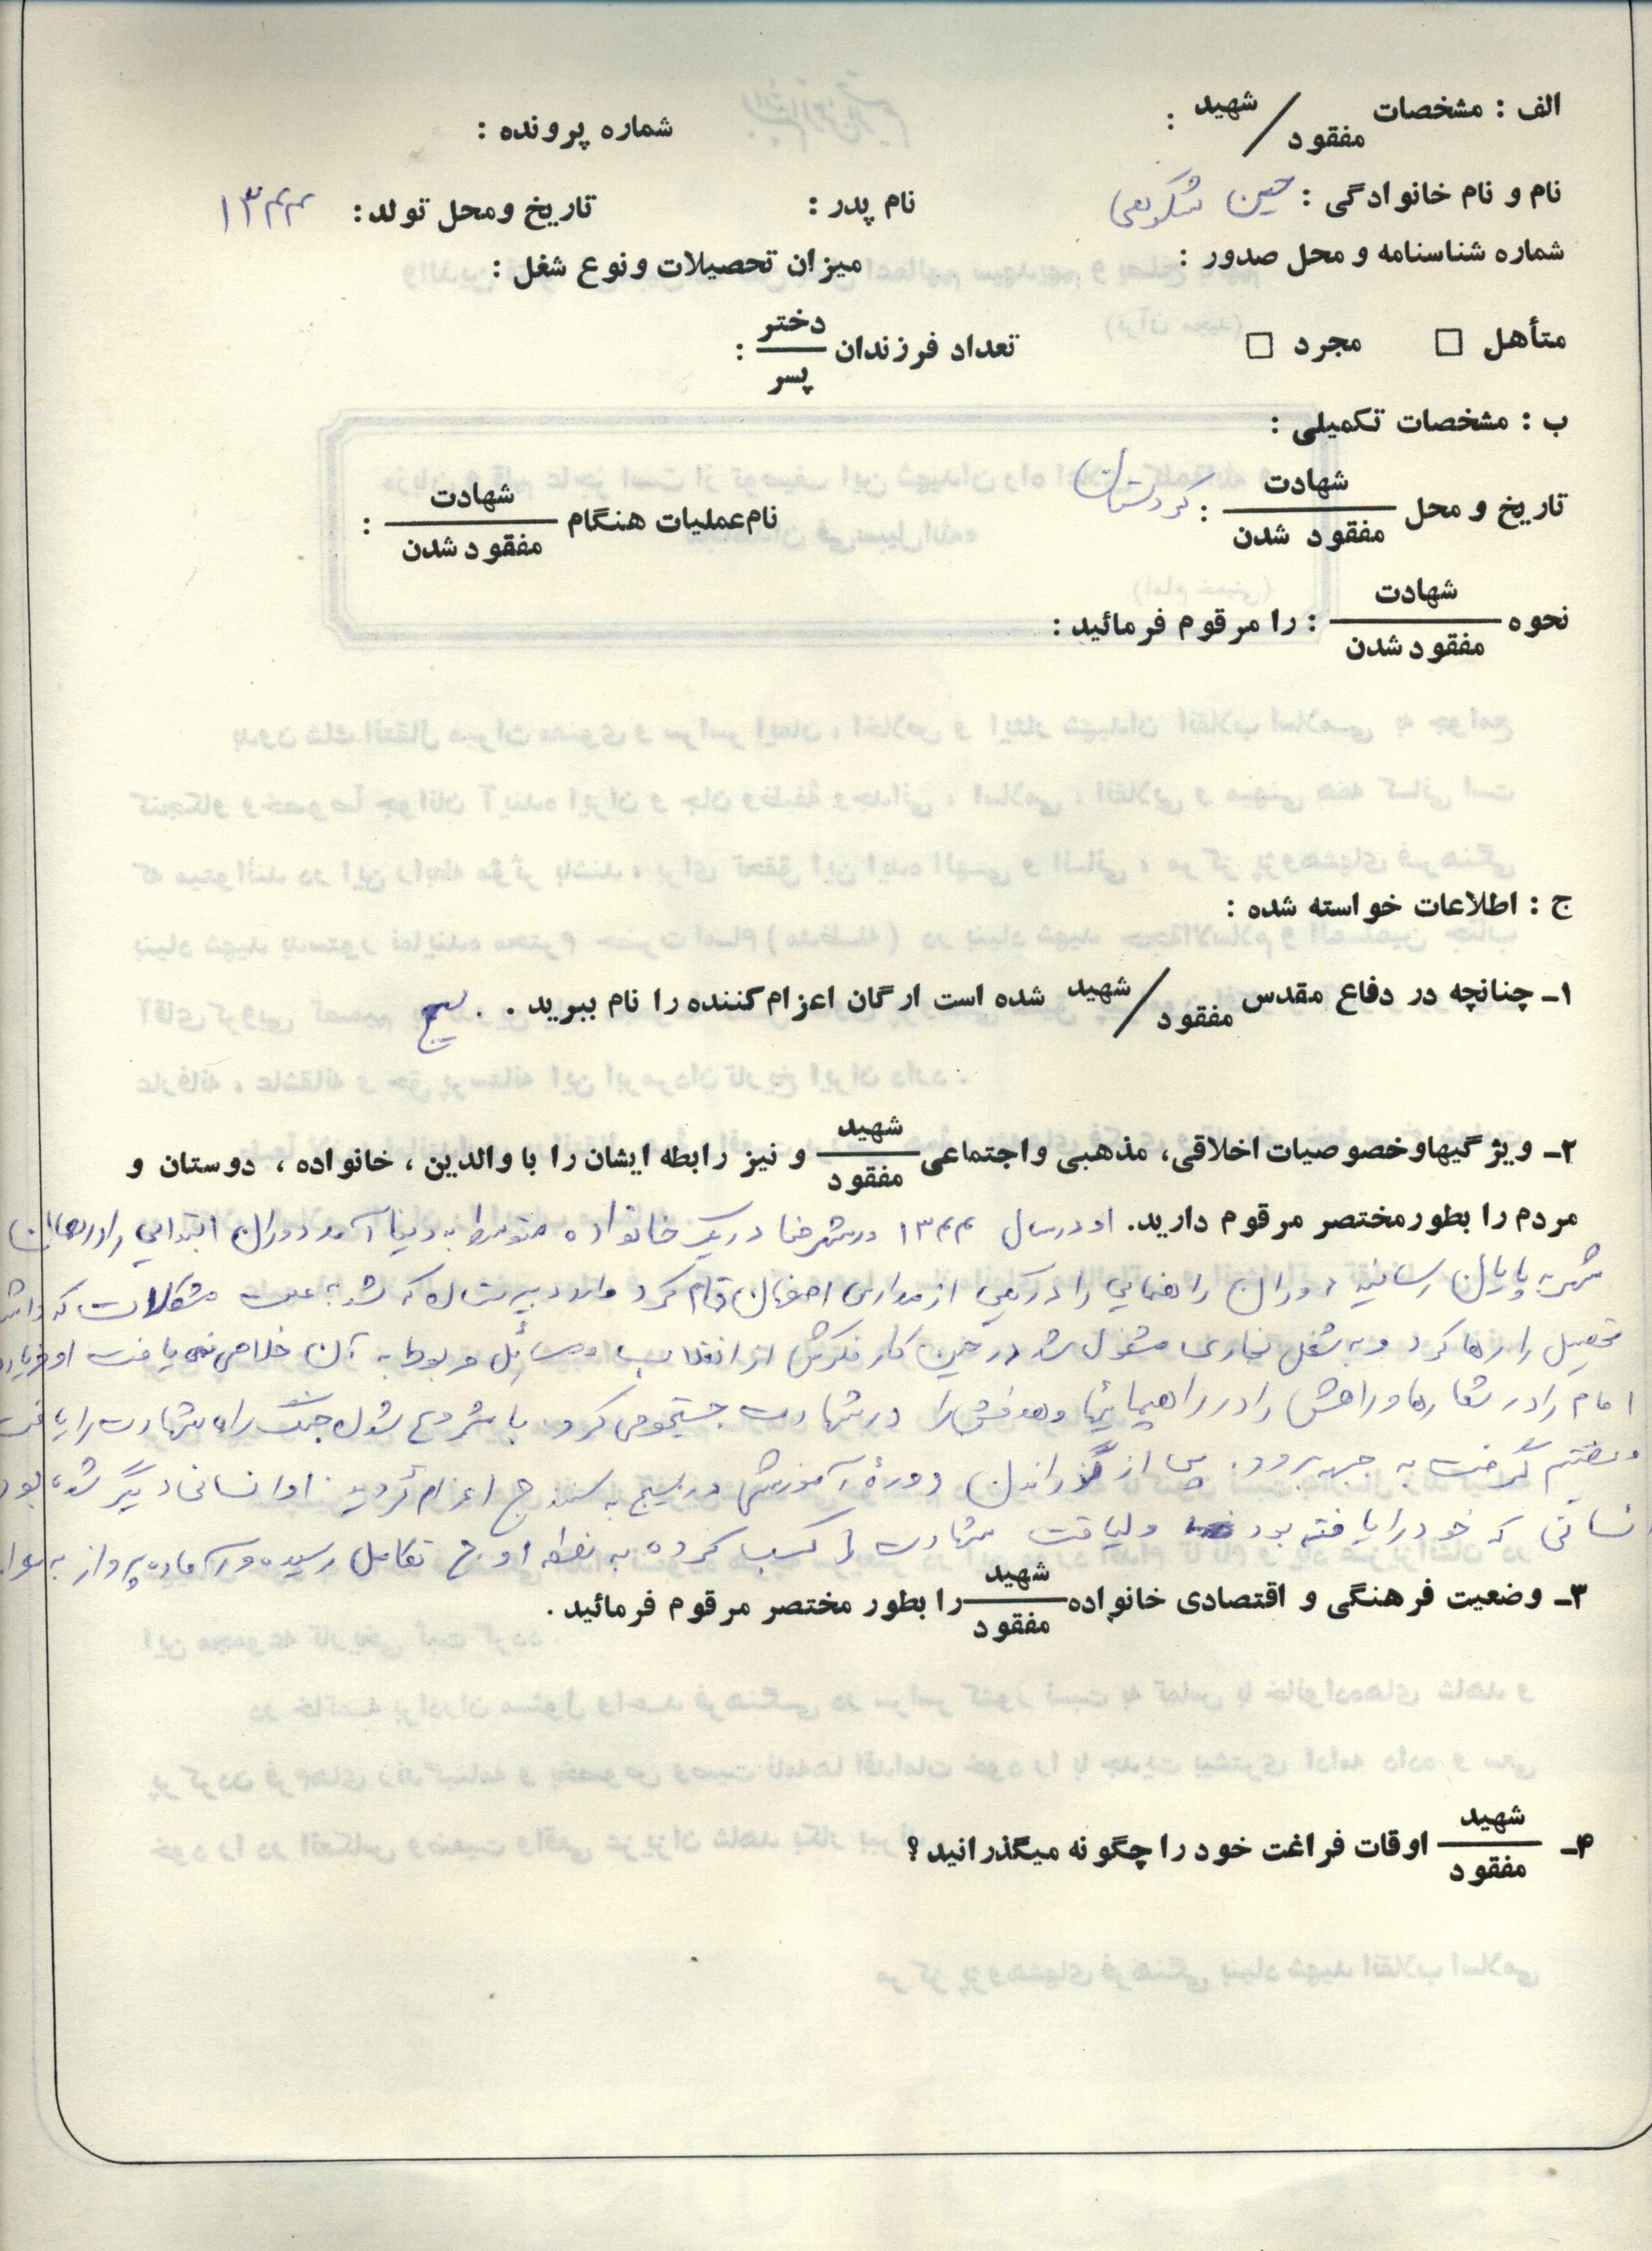 الف : مشخصات شهید / مفقود :
شماره پرونده :
نام و نام خانوادگی : حسین شکوهی
نام پدر :
تاریخ ومحل تولد : ۱۳۴۴
شماره شناسنامه و محل صدور :
میزان تحصیلات و نوع شغل :
متأهل □ مجرد □
تعداد فرزندان دختر / پسر :
ب : مشخصات تکمیلی :
تاریخ و محل شهادت / مفقود شدن : کردستان
نام عملیات هنگام شهادت / مفقود شدن :
نحوه شهادت / مفقود شدن : را مرقوم فرمائید :
ج : اطلاعات خواسته شده :
۱ـ چنانچه در دفاع مقدس شهید / مفقود شده است ارگان اعزام کننده را نام ببرید . . بسیج
۲ـ ویژگیها و خصوصیات اخلاقی، مذهبی و اجتماعی شهید / مفقود و نیز رابطه ایشان را با والدین ، خانواده ، دوستان و
مردم را بطور مختصر مرقوم دارید. او در سال ۱۳۴۴ در شهرضا در یک خانواده متوسط به دنیا آمد دوران ابتدایی را در همان
شهر به پایان رسانید دوران راهنمایی را در یکی از مدارس اصفهان تمام کرد وارد دبیرستان که شد به علت مشکلات که داشت
تحصیل را رها کرد و به شغل نجاری مشغول شد در حین کار فکرش از انقلاب و مسائل مربوط به آن خلاصی نمی یافت او فریاد
امام را در شعارها و راهش را در راهپیمائیها و هدفش را در شهادت جستجو می کرد. با شروع شدن جنگ راه شهادت را یافت
و تصمیم گرفت به جبهه برود. پس از گذراندن دورهٔ آموزشی در بسیج به سنندج اعزام گردید. او انسانی دیگر شده بود
انسانی که خود را یافته بود و لیاقت شهادت را کسب کرده به نقطه اوج تکامل رسیده و آماده پرواز به سوی
۳ـ وضعیت فرهنگی و اقتصادی خانواده شهید / مفقود را بطور مختصر مرقوم فرمائید .
۴ـ شهید / مفقود اوقات فراغت خود را چگونه میگذرانید ؟